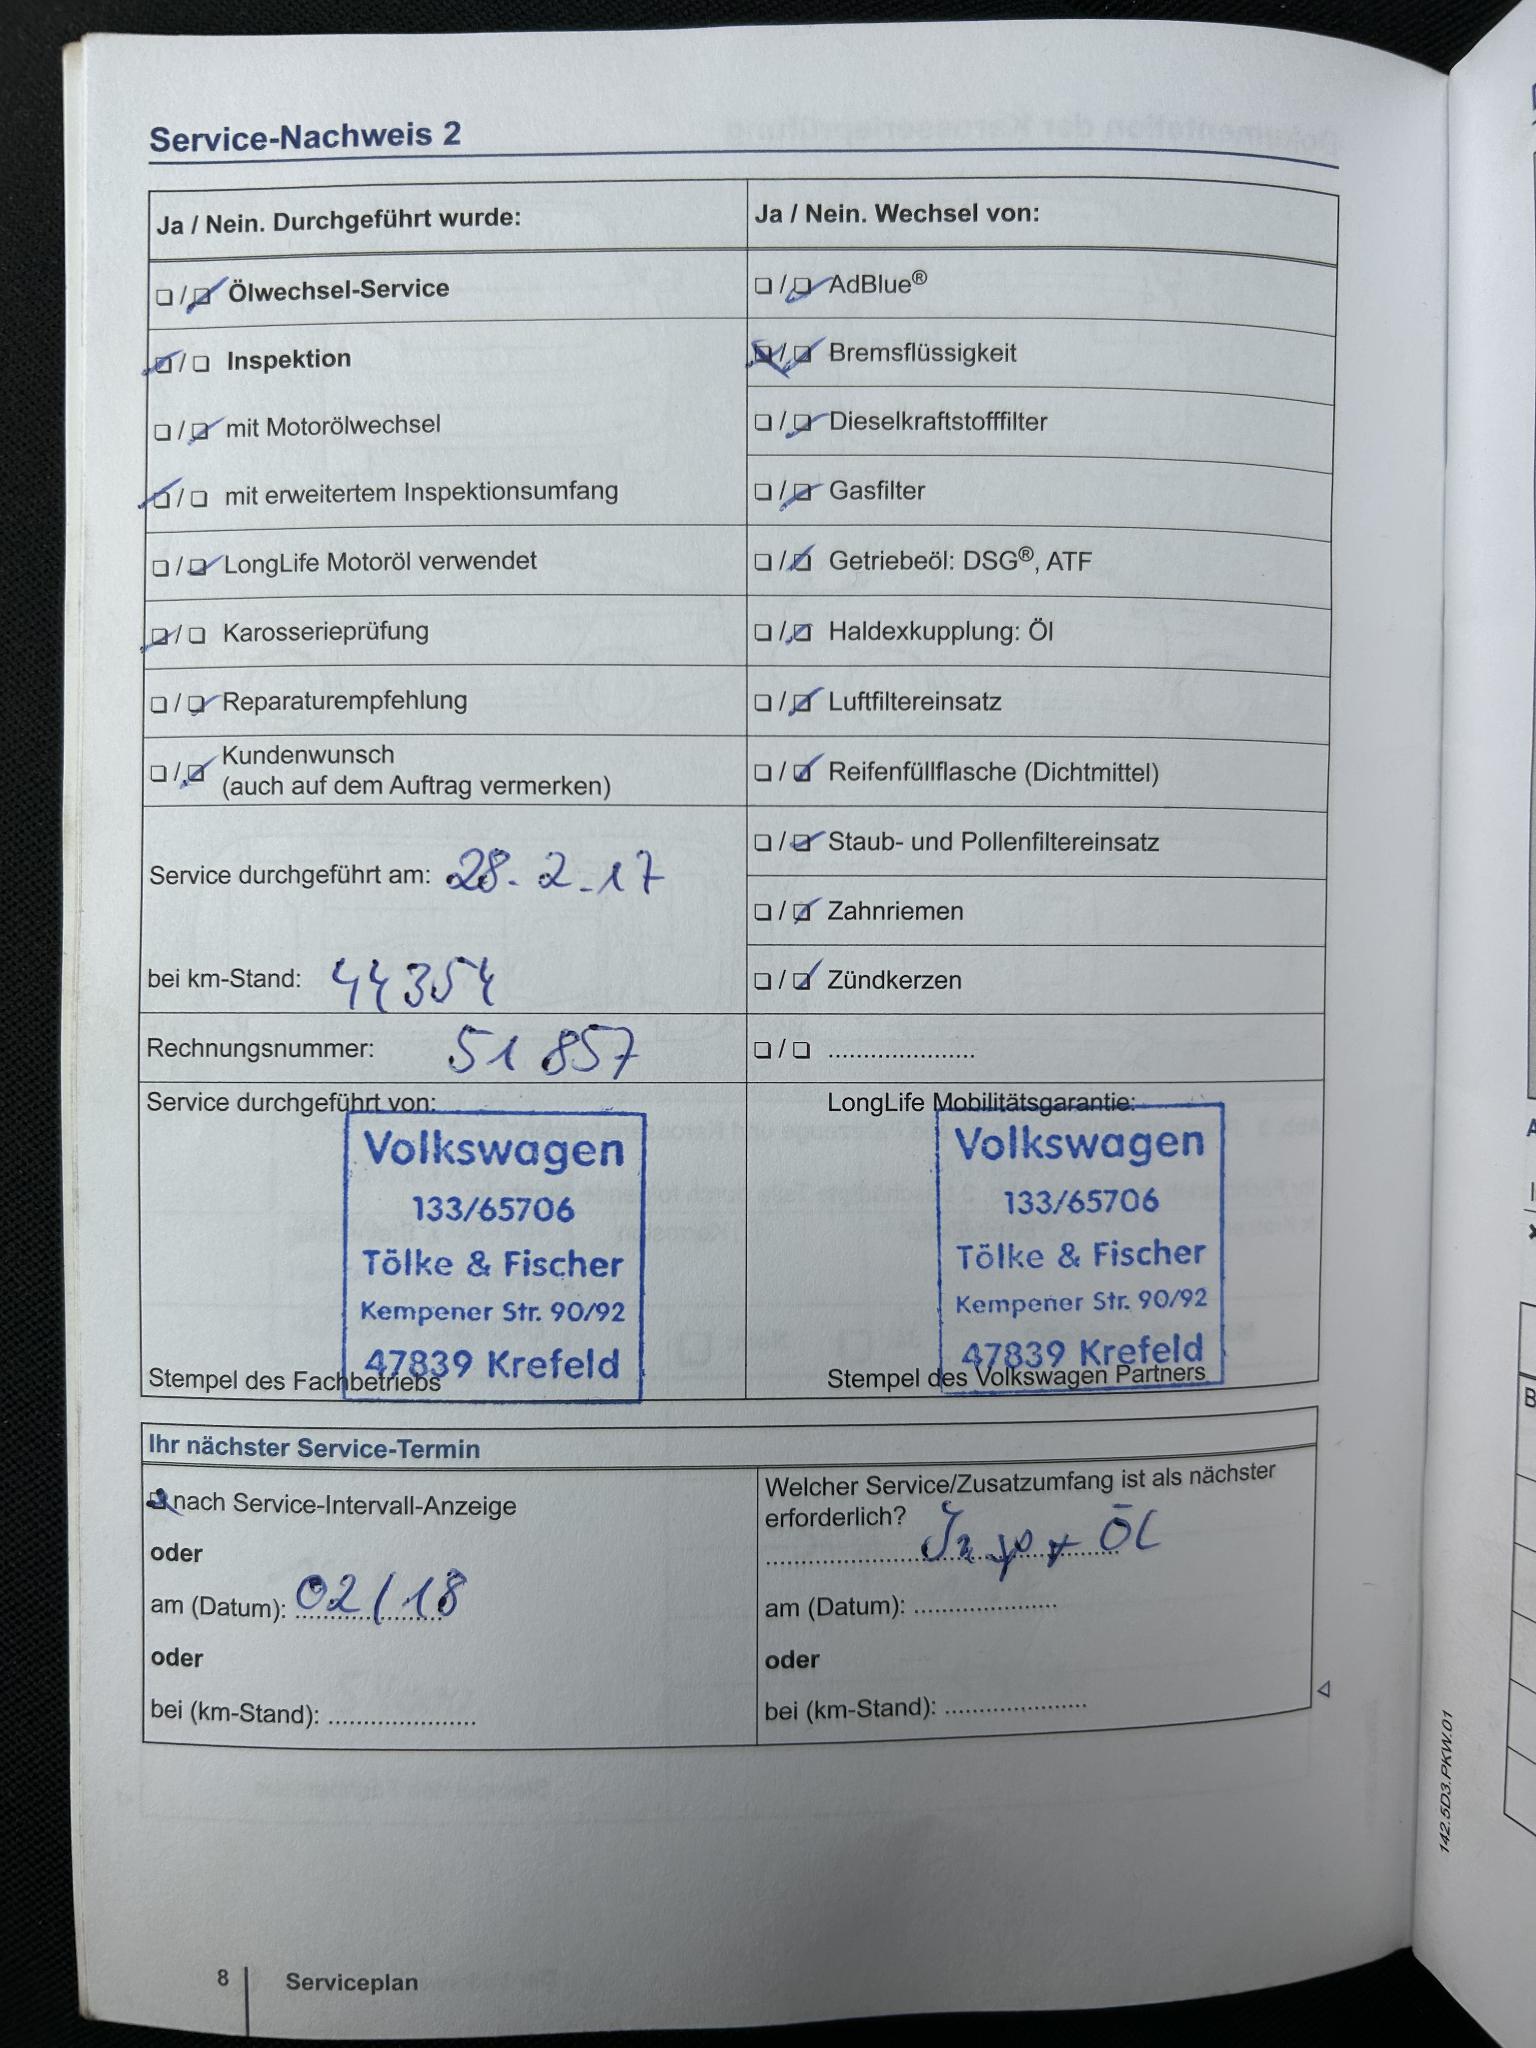 Service-Nachweis 2
Ja / Nein. Durchgeführt wurde:
☐ / ☑ Ölwechsel-Service
☑ / ☐ Inspektion
☐ / ☑ mit Motorölwechsel
☑ / ☐ mit erweitertem Inspektionsumfang
☐ / ☑ LongLife Motoröl verwendet
☑ / ☐ Karosserieprüfung
☐ / ☑ Reparaturempfehlung
☐ / ☑ Kundenwunsch
(auch auf dem Auftrag vermerken)
Service durchgeführt am: 28.2.17
bei km-Stand: 44354
Rechnungsnummer: 51857
Ja / Nein. Wechsel von:
☐ / ☑ AdBlue®
☑ / ☑ Bremsflüssigkeit
☐ / ☑ Dieselkraftstofffilter
☐ / ☑ Gasfilter
☐ / ☑ Getriebeöl: DSG®, ATF
☐ / ☑ Haldexkupplung: Öl
☐ / ☑ Luftfiltereinsatz
☐ / ☑ Reifenfüllflasche (Dichtmittel)
☐ / ☑ Staub- und Pollenfiltereinsatz
☐ / ☑ Zahnriemen
☐ / ☑ Zündkerzen
☐ / ☐ .....................
Service durchgeführt von:
Volkswagen
133/65706
Tölke & Fischer
Kempener Str. 90/92
47839 Krefeld
Stempel des Fachbetriebs
LongLife Mobilitätsgarantie:
Volkswagen
133/65706
Tölke & Fischer
Kempener Str. 90/92
47839 Krefeld
Stempel des Volkswagen Partners
Ihr nächster Service-Termin
☑ nach Service-Intervall-Anzeige
oder
am (Datum): 02/18
oder
bei (km-Stand): .....................
Welcher Service/Zusatzumfang ist als nächster
erforderlich?
Insp + Öl
am (Datum): .....................
oder
bei (km-Stand): .....................
142.5D3.PKW.01
8 Serviceplan